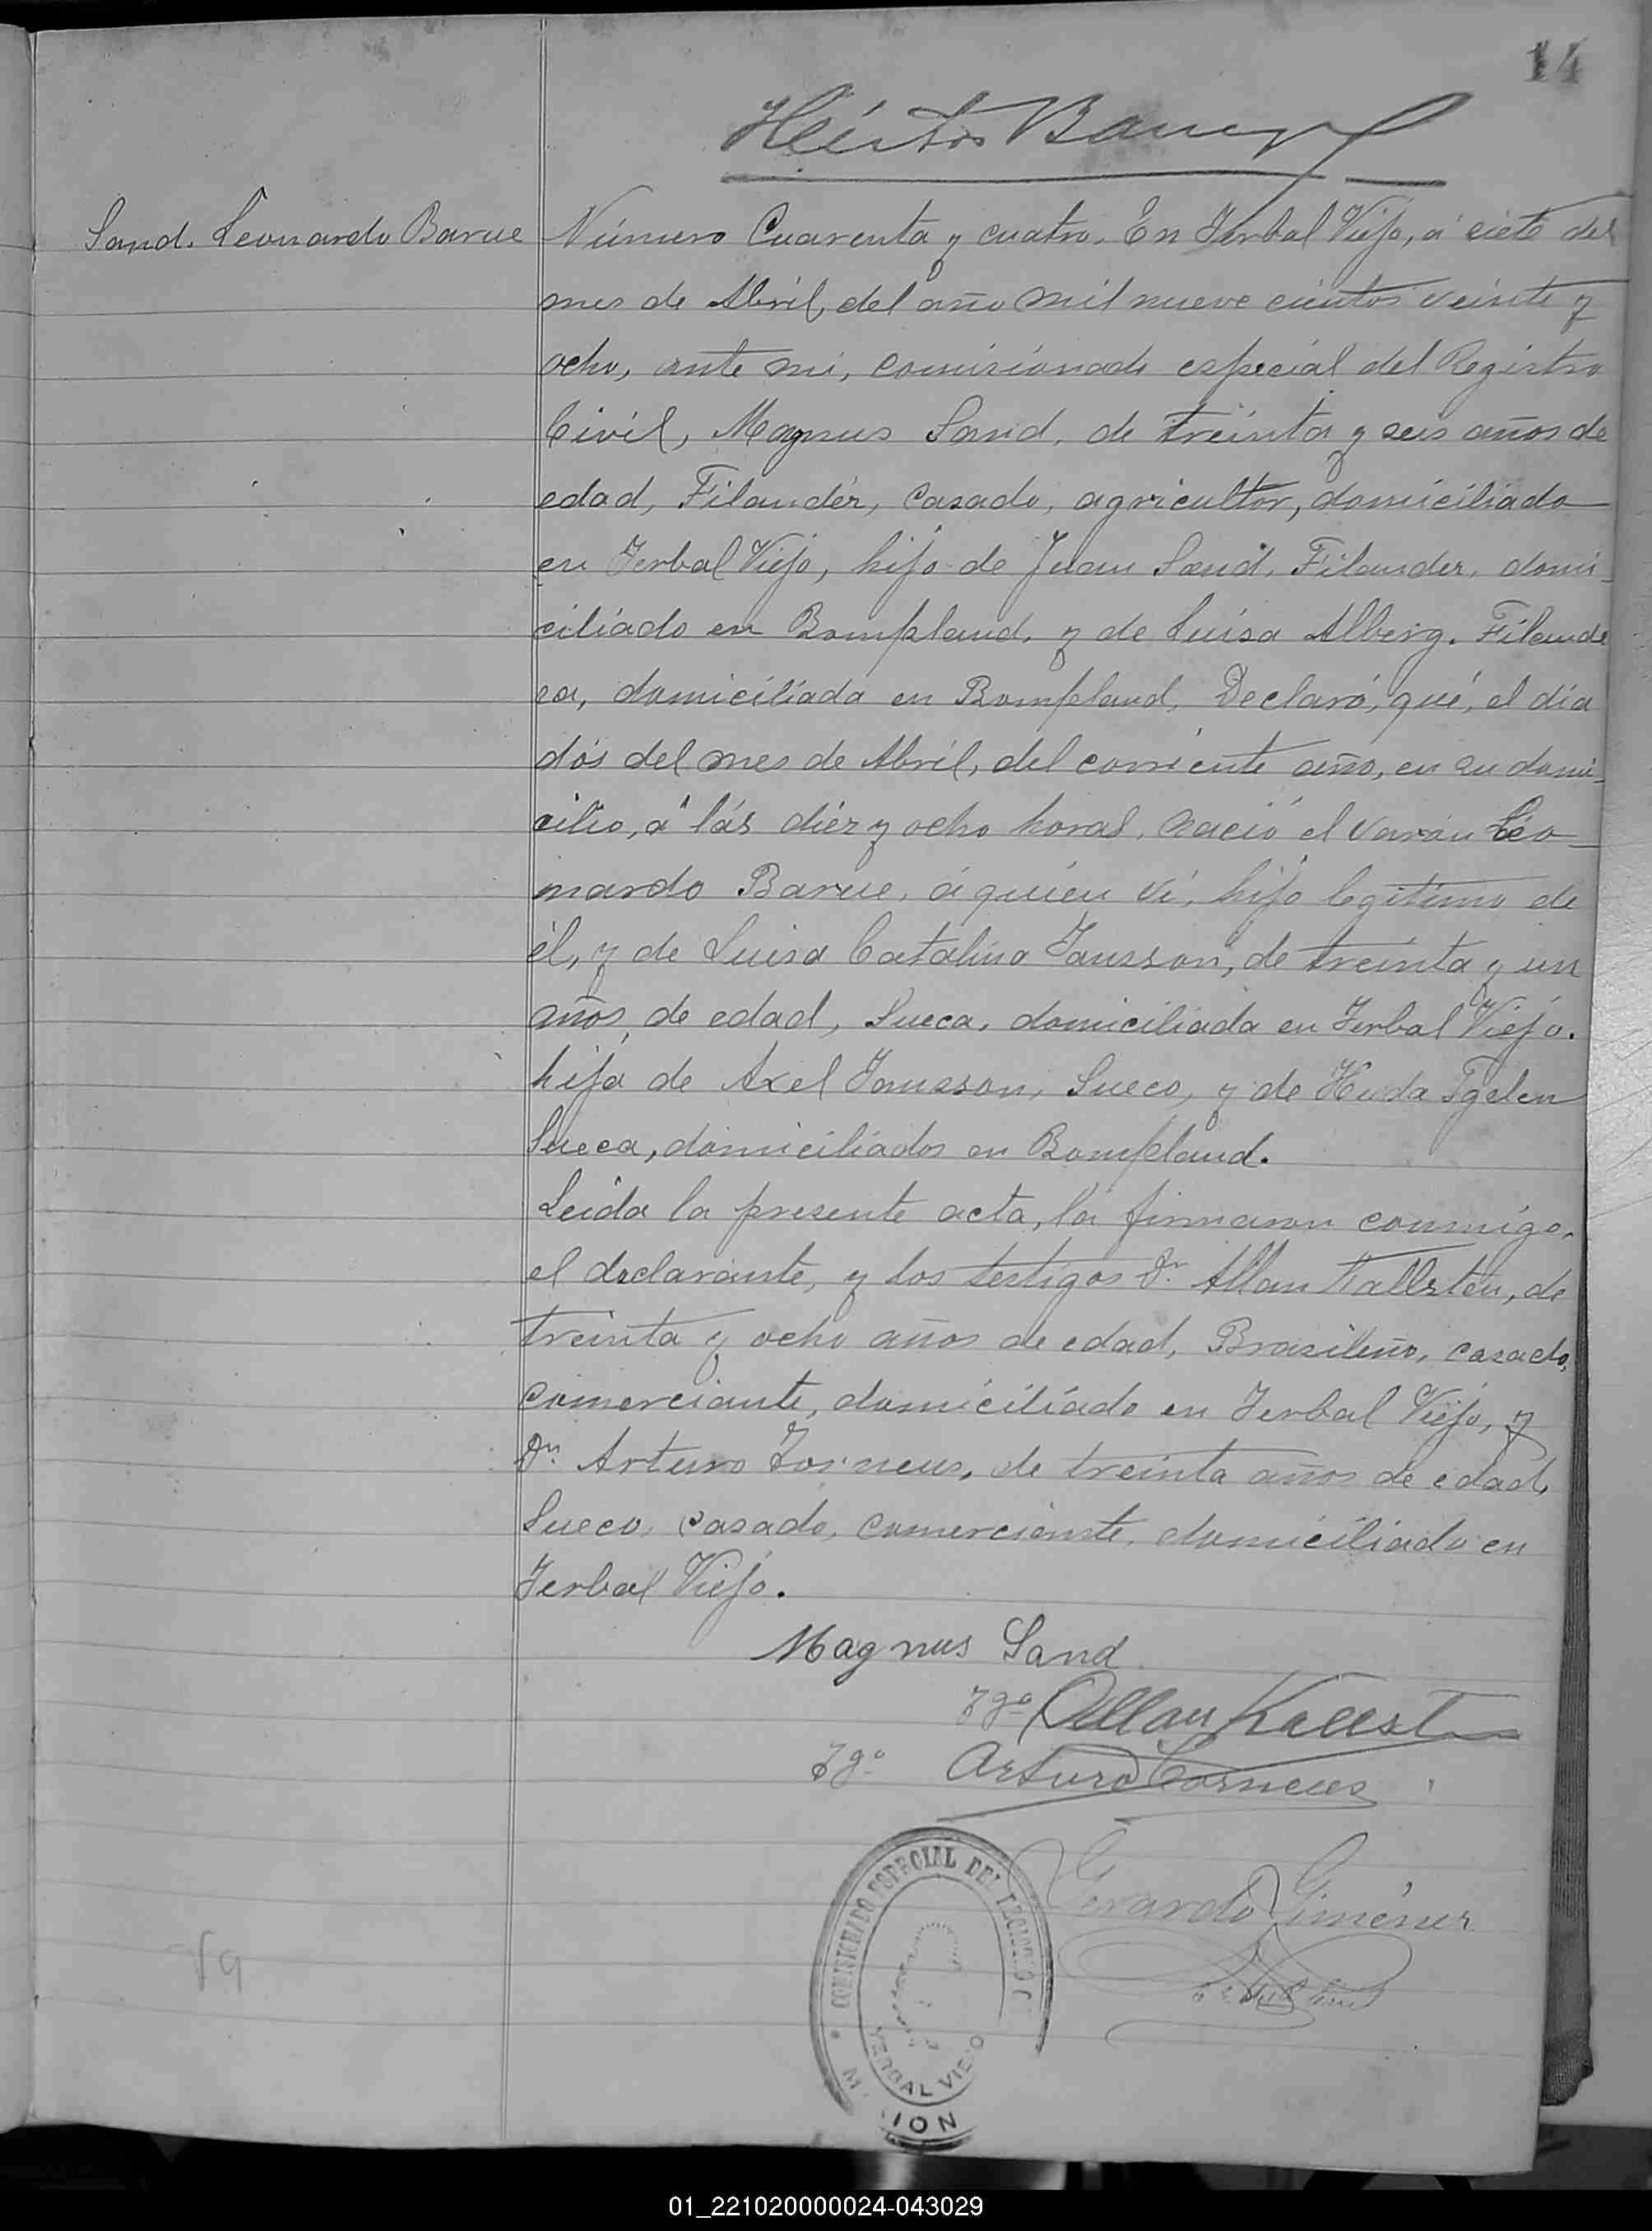 14
Héctor Barrey
Sand. Leonardo Barue
Número Cuarenta y cuatro. En Yerbal Viejo, á siete del
mes de Abril, del año mil nueve cientos veinte y
ocho, ante mi, comisionado especial del Registro
Civil, Magnus Sand, de treinta y seis años de
edad, Filandér, casado, agricultor, domiciliado
en Yerbal Viejo, hijo de Juan Sand, Filander, domi-
ciliado en Bompland, y de Luisa Alberg. Filande
sa, domiciliada en Bompland, Declaró, qué, el día
dós del mes de Abril, del corriente año, en su domi-
cilio, á lás diéz y ocho horas, nació el varón Léo-
nardo Barue, á quien ví, hijo legitimo de
él, y de Luisa Catalina Jansson, de treinta y un
años de edad, Sueca, domiciliada en Yerbal Viejo.
hija de Axel Jansson, Sueco, y de Huda Tgelen
Sueca, domiciliados en Bompland.
Leida la presente acta, la firmaron conmigo,
el declarante, y los testigos Dn Allan Kallsten, de
treinta y ocho años de edad, Brasileño, casado,
comerciante, domiciliado en Yerbal Viejo, y
Dn. Arturo Zorneus, de treinta años de edad,
Sueco, casado, comerciante, domiciliado en
Yerbal Viejo.
Magnus Sand
Tgo Allan Kallst
Tgo. Arturo Corneus
Gerardo Giménez
COMISIONADO ESPECIAL DEL REGISTRO C
YERBAL VIEJO
M ION
01_221020000024-043029